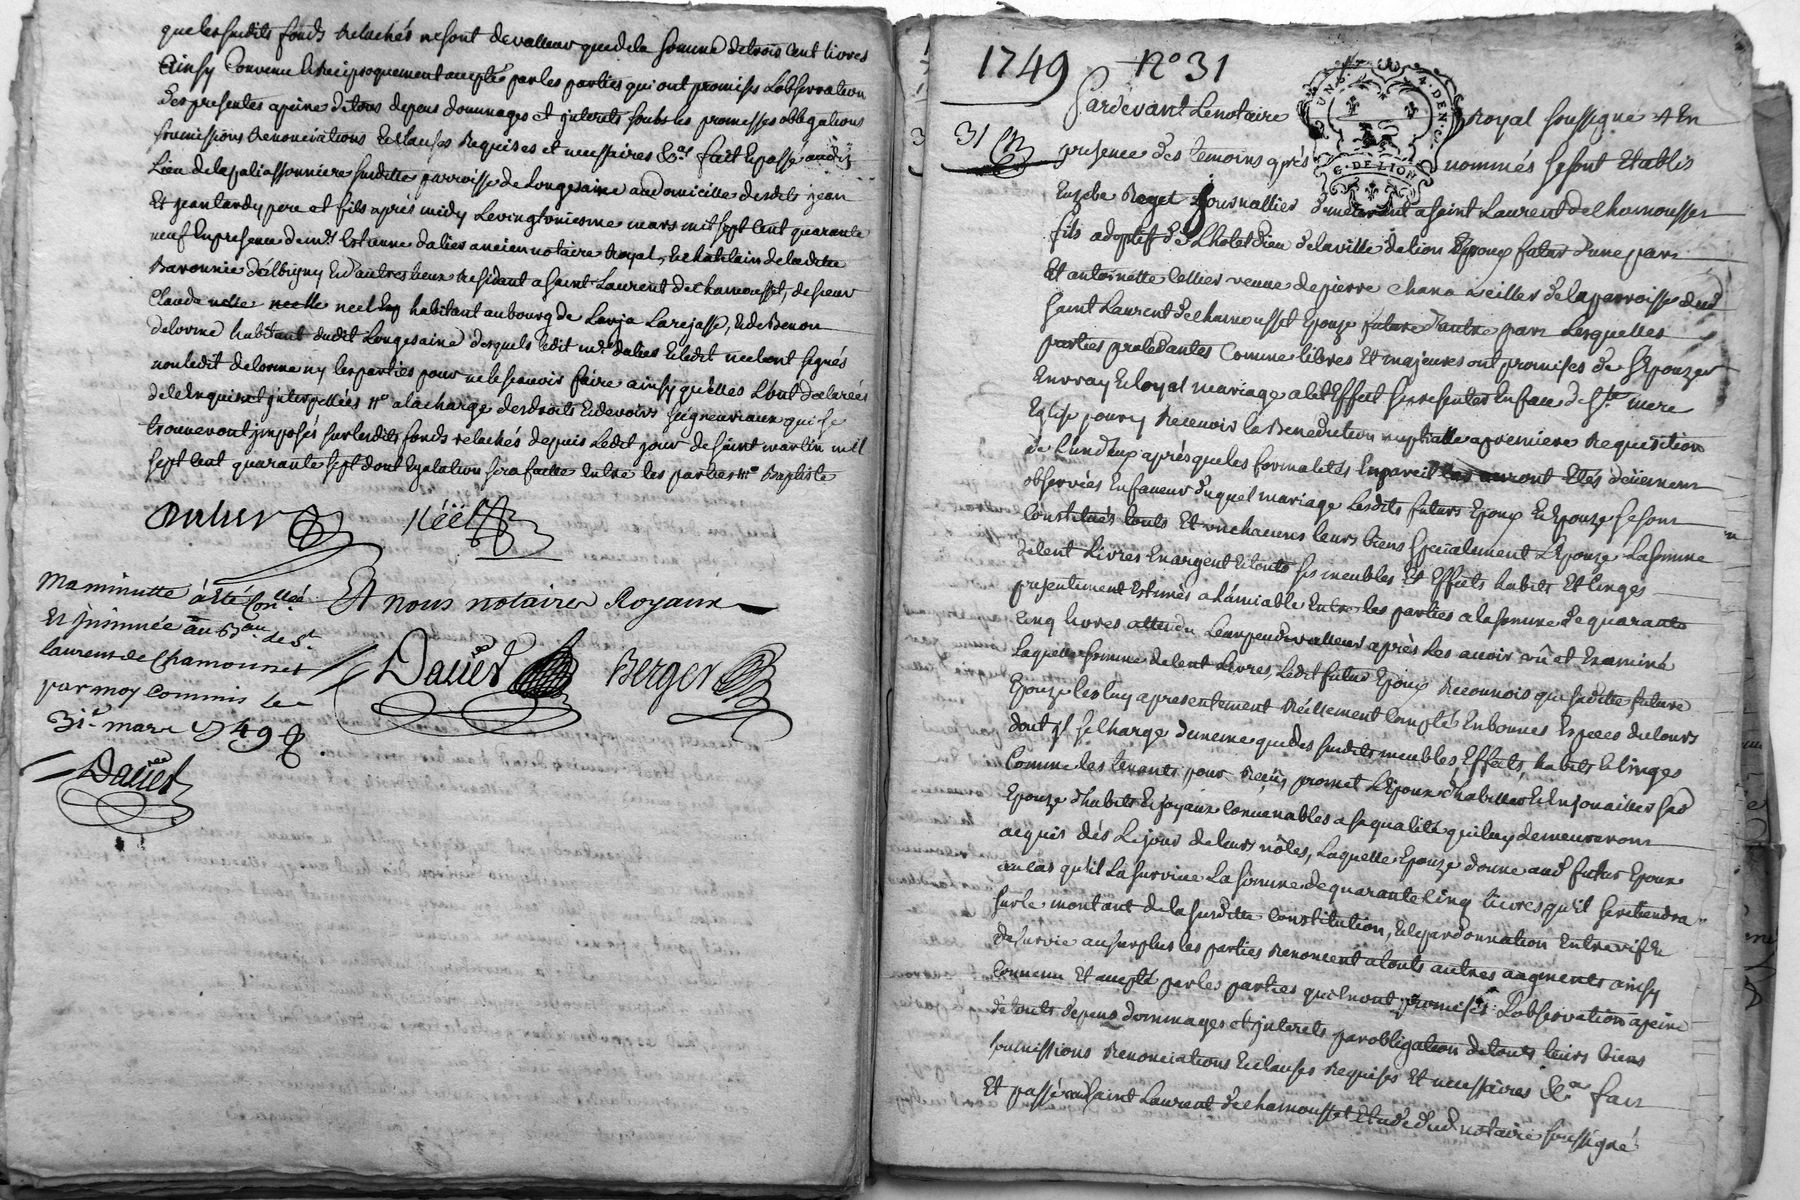 que les susdits fonds relachés ne sont de valleur que de la somme de trois cent livres
Ainsy Convenu et reciproquement accepté par les parties qui ont promises L'observation
des presentes a peine de tous depens dommages et interets soubs les promesses obligations
soumissions Renonciations et clauses Requises et necessaires &a. fait et passé audit
Lieu de la paliassonniere susditte parroisse de Longesaine au domicille desdits jean
Et jean tardy pere et fils après midy Le vingt onieme mars mil sept cent quarante
neuf En presence de mr Estienne dalies ancien notaire royal, et chatelain de laditte
Baronnie d'albigny et d'autres lieux residant a saint Laurent de chamousset, de sieur
Claude néel habitant au bourg de Larajasse, et de Benoit
delorme habitant dudit Longesaine desquels ledit mr dalies et ledit néel ont signés
non ledit delorme ny les parties pour ne le sçavoir faire ainsy qu'elles L'ont déclarées
de ce Enquis et interpellées a la charge des droits et devoirs seigneuriaux qui se
trouveront imposés sur lesdits fonds relachés depuis Ledit jour de saint martin mil
sept cent quarante sept dont Egalation sera faitte Entre les parties Baptiste
Néël
Et nous notaires Royaux
Ma minutte à Eté Conllée
Et sinnnée au B.au de St
laurent de Chamousset
par moy Commis le
31e mars 1749
Daviet Berger
Daviet
1749 N° 31
31
Pardevant Le notaire Royal soussigné & En
presence des temoins après nommés se sont Etablis
Euzebe Roget Journallier demeurant a saint Laurent de Chamousset
fils adoptif de L'hotel dieu de la ville de lion Epoux futur d'une part
Et antoinette Cellier veuve de pierre Chana de la parroisse dud
saint Laurent de Chamousset Epouze future d'autre part Lesquelles
parties procedantes Comme libres Et majeures ont promises de S'Epouzer
En vray et loyal mariage a cet Effect se presenter En face de Ste mere
Eglise pour y Recevoir la Benediction nuptialle a premiere Requisition
de L'un d'Eux après que les formalités En pareil cas auront Etés düement
observées En faveur duquel mariage Lesdits futurs Epoux et Epouze se sont
Constitués touts Et un chacuns leurs biens specialement L'Epouze La somme
de cent Livres En argent et touts ses meubles Et Effects habits Et linges
presentement Estimés a L'amiable Entre les parties a la somme de quarante
cinq livres attendu Leur peu de valleur après Les avoir vû et Examiné
Laquelle somme de cent Livres, Ledit futur Epoux Reconnois que saditte future
Epouze les luy a presentement Réellement Comptés En bonnes Especes du cours
dont il se charge de meme que des susdits meubles, Effects, habits et linges
Comme les tenants pour Reçus, promet L'Epoux d'habiller et Enjoüailler sad
Epouze d'habits et joyaux Convenables a sa qualité qui luy demeureront
acquis dès Le jour de leurs nôces, Laquelle Epouze donne aud futur Epoux
au cas qu'il La survive La somme de quarante Cinq Livres qu'il se retiendra
sur le montant de la susditte Constitution, et par donnation Entre vifs et
de survie au surplus les parties Renoncent a touts autres augments ainsy
Convenu Et accepté par les parties qui En ont promises L'observation a peine
de touts depens dommages et interets par obligation de touts leurs biens
soumissions Renonciations et clauses Requises Et necessaires &a fait
Et passé aud saint Laurent de Chamousset Etude dud notaire soussigné